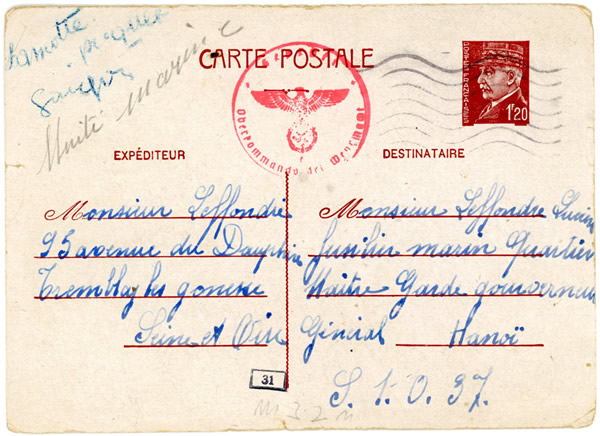 Lamotte
picquet
Unité marine
CARTE POSTALE
1f20
Oberkommando der Wehrmacht
EXPÉDITEUR
DESTINATAIRE
Monsieur Leffondré
95 avenue du Dauphiné
Tremblay les gonesse
Seine et Oise
31
Monsieur Leffondre Lucien
fusilier marin Quartier
Maître Garde gouverneur
Général Hanoï
S. 1. 0. 37.